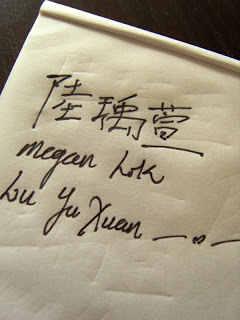 陸瑀萱
megan Lok
Lu Yu Xuan